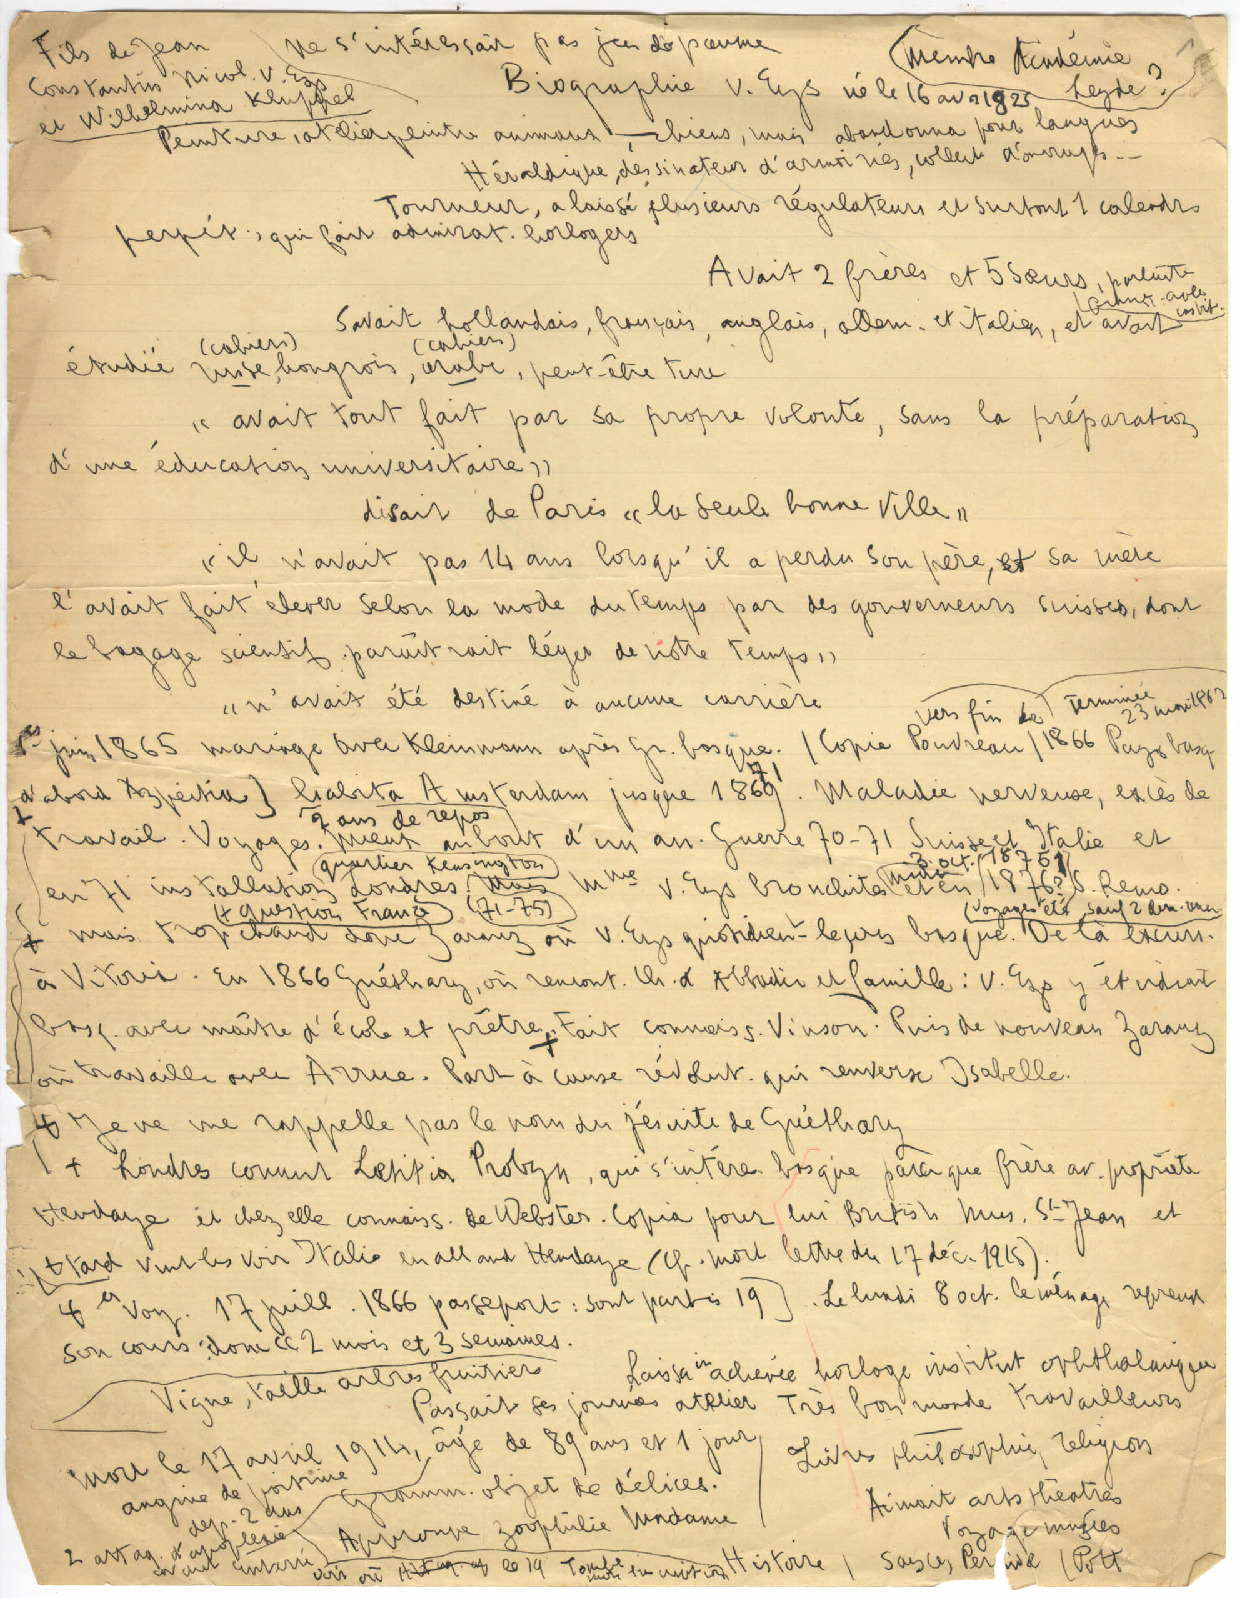 Fils de Jean
Constantin Nicol. V. Eys
et Wilhelmina Klüppel
ne s'intéressait pas jeu de paume
(Membre Académie
Leyde?
Biographie V. Eys né le 16 avr 1825
Peinture, atelier peintre animaux, chiens, mais abandonna pour langues
Héraldique, dessinateur d'armoiries, collect. d'ouvrages --
Tourneur, a laissé plusieurs régulateurs et surtout 1 calendr.
perpét., qui fait admirat. horlogers
Avait 2 frères et 5 sœurs,
Savait hollandais, français, anglais, allem. et italien, et avait
(cahiers) (cahiers)
étudié russe, hongrois, arabe, peut-être turc
"avait tout fait par sa propre volonté, sans la préparation
d'une éducation universitaire"
disait de Paris "la seule bonne ville"
"il n'avait pas 14 ans lorsqu'il a perdu son père, et sa mère
l'avait fait élever selon la mode du temps par des gouverneurs suisses, dont
le bagage scientif. paraîtrait léger de notre temps"
"n'avait été destiné à aucune carrière
vers fin de
Terminée
23 1862
juin 1865 mariage avec Kleinmann après Gr. basque. / Copie Pouvreau / 1866 Pays basq
d'abord Azpeitia] habita Amsterdam jusque 1867. Maladie nerveuse, excès de
2 ans de repos
travail. Voyages. Mieux au bout d'un an. Guerre 70-71 Suisse et Italie et
quartier Kensington
3 oct. 1875
en 71 installation Londres. Mais Mme V. Eys bronchites et en 1876? S. Remo.
(+ question France) (71-75)
(voyages été sauf 2 dern.
+ mais trop chaud donc Zarauz où V. Eys quotidient leçons basque. De là excurs.
à Vitoria. En 1866 Guéthary, où rencont. Ch. d'Abbadie et famille: V. Eys y étudiait
basq. avec maître d'école et prêtre + Fait connaiss. Vinson. Puis de nouveau Zarauz
où travaille avec Arrue. Part à cause révolut. qui renverse Isabelle.
+ Je ne me rappelle pas le nom du jésuite de Guéthary
+ Londres connut Lætitia Probyn, qui s'intére. basque parce que frère av. propriété
Hendaye et chez elle connaiss. de Webster. Copia pour lui British Mus. St Jean et
+ tard vint les voir Italie en allant Hendaye (Cf. mort lettre du 17 déc. 1915).
+ er Voy. 17 juill. 1866 passeport: sont partis 19]. Le lundi 8 oct. le ménage reprend
son cours: donc "2 mois et 3 semaines.
Vigne, taille arbres fruitiers
Laissa inachevée horloge institut ophthalmique
Passait ses journées atelier Très bon monde travailleurs
Mort le 17 avril 1914, âge de 89 ans et 1 jour,
angine de poitrine
dep. 2 ans
2 attaq. d'apoplexie
Gramm. objet de délices.
Livres philosophie, religions
Aimait arts théâtres
Voyage musées
Approuve zoophilie Madame
Histoire /